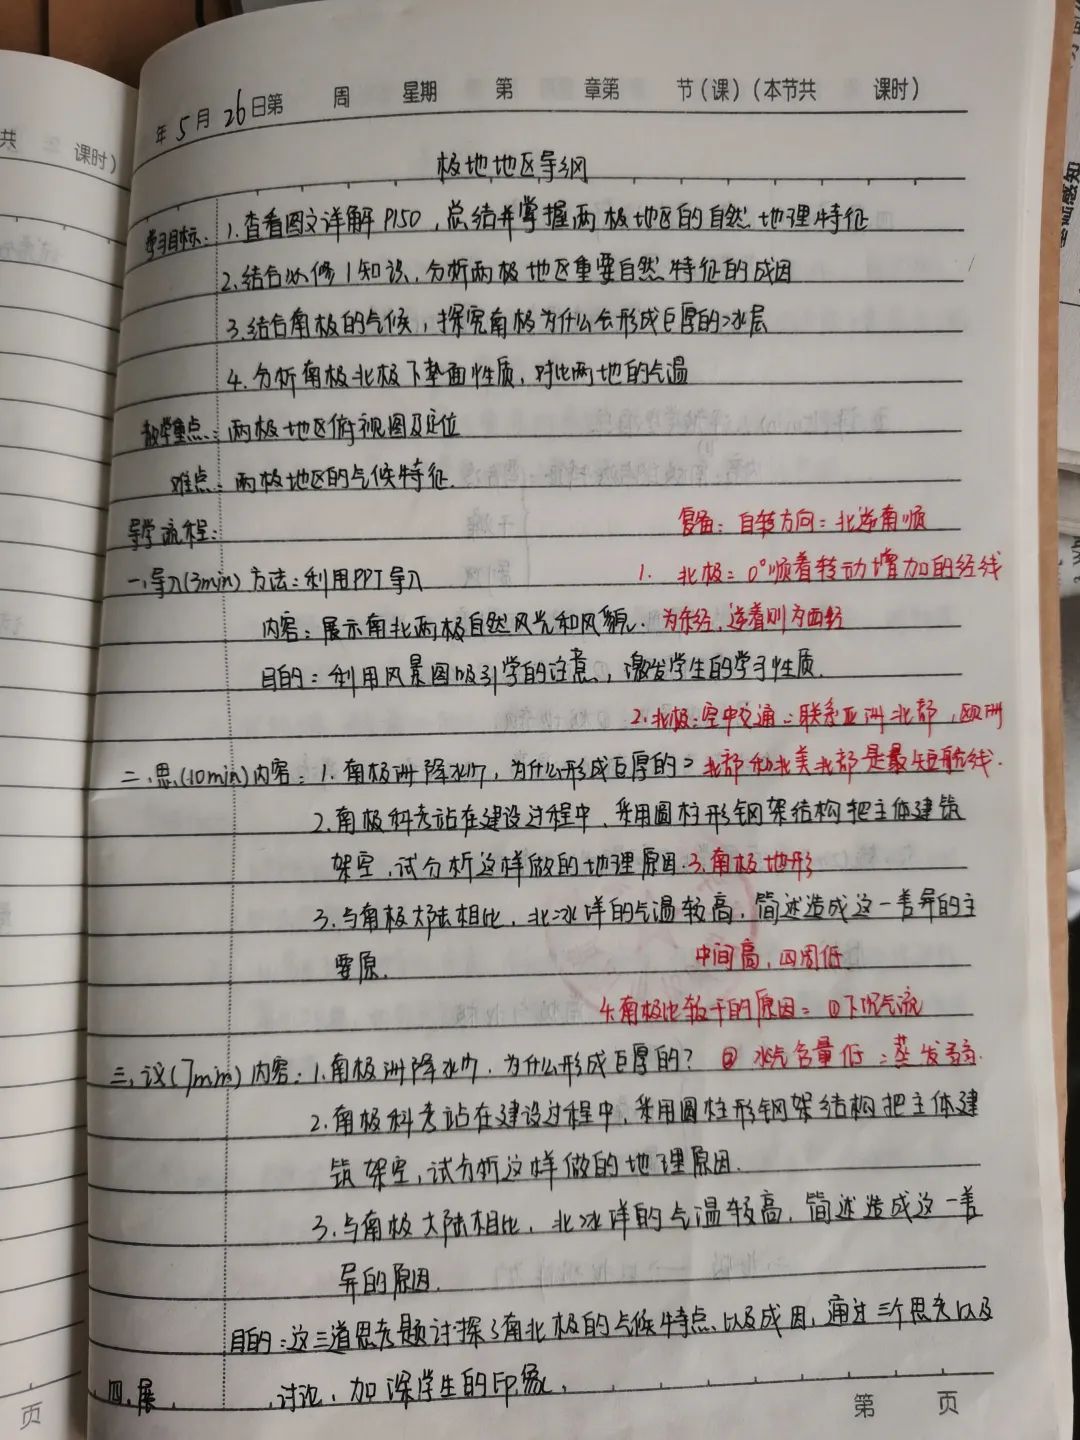 年5月26日第 周 星期 第 章第 节(课)(本节共 课时)
共 课时)
极地地区导纲
学习目标:1.查看图文详解P150,总结并掌握两极地区的自然地理特征
2.结合必修1知识,分析两极地区重要自然特征的成因
3.结合南极的气候,探究南极为什么会形成巨厚的冰层
4.分析南极北极下垫面性质,对比两地的气温
教学重点:两极地区俯视图及定位
难点:两极地区的气候特征.
导学流程: 复备:自转方向:北逆南顺
一.导入(3min)方法:利用PPT导入 1. 北极:0°顺着转动增加的经线
内容:展示南北两极自然风光和风貌. 为东经,逆着则为西经
目的:利用风景图吸引学的注意,激发学生的学习性质.
2.北极:空中交通:联系亚洲北部,欧洲
二.思(10min)内容:1.南极洲降水少,为什么形成巨厚的? 北部和北美北部是最短航线.
2.南极科考站在建设过程中,采用圆柱形钢架结构把主体建筑
架空,试分析这样做的地理原因. 3.南极地形
3.与南极大陆相比,北冰洋的气温较高,简述造成这一差异的主
要原. 中间高,四周低
4.南极比较干的原因:①下沉气流
三.议(7min)内容:1.南极洲降水少,为什么形成巨厚的? ②水汽含量低:蒸发
2.南极科考站在建设过程中,采用圆柱形钢架结构把主体建
筑架空,试分析这样做的地理原因.
3.与南极大陆相比,北冰洋的气温较高,简述造成这一差
异的原因.
目的:这三道思考题讨探了南北极的气候特点以及成因,通过三个思考以及
四.展 讨论,加深学生的印象.
第 页
页